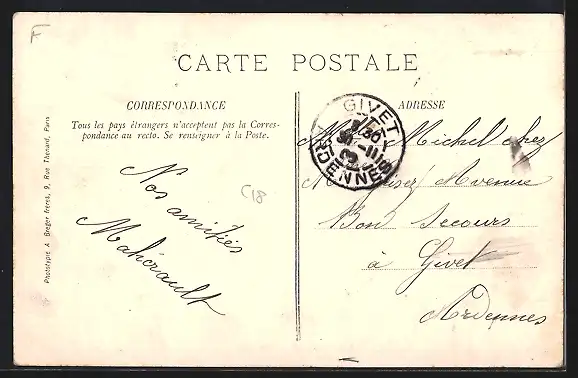 F
CARTE POSTALE
CORRESPONDANCE
Tous les pays étrangers n'acceptent pas la Corres-
pondance au recto. Se renseigner à la Poste.
Nos amitiés
Mahérault
C18
Phototypie A. Breger frères, 9, Rue Thénard, Paris
ADRESSE
GIVET
ARDENNES
Michel chez
Avenue
Bon Secours
à Givet
Ardennes